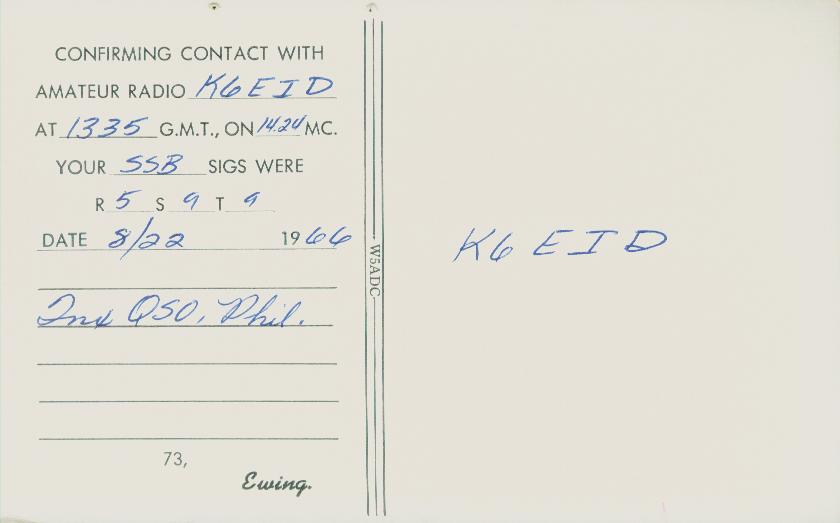 CONFIRMING CONTACT WITH
AMATEUR RADIO K6EID
AT 1335 G.M.T., ON 14.24 MC.
YOUR SSB SIGS WERE
R 5 S 9 T 9
DATE 8/22 1966
Tnx QSO, Phil.
73,
Ewing.
W5ADC
K6EID